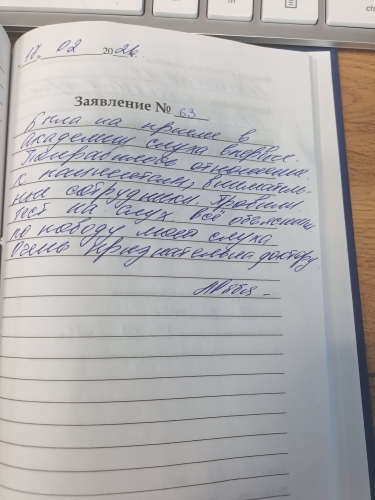 18. 02 2026.
Заявление № 63
Была на приеме в
академии слуха впервые.
Понравилось отношение
к пациентам, вниматель-
ные сотрудники, провели
тест на слух всё объяснили
по поводу моего слуха
Очень признательна доктору
ctrl